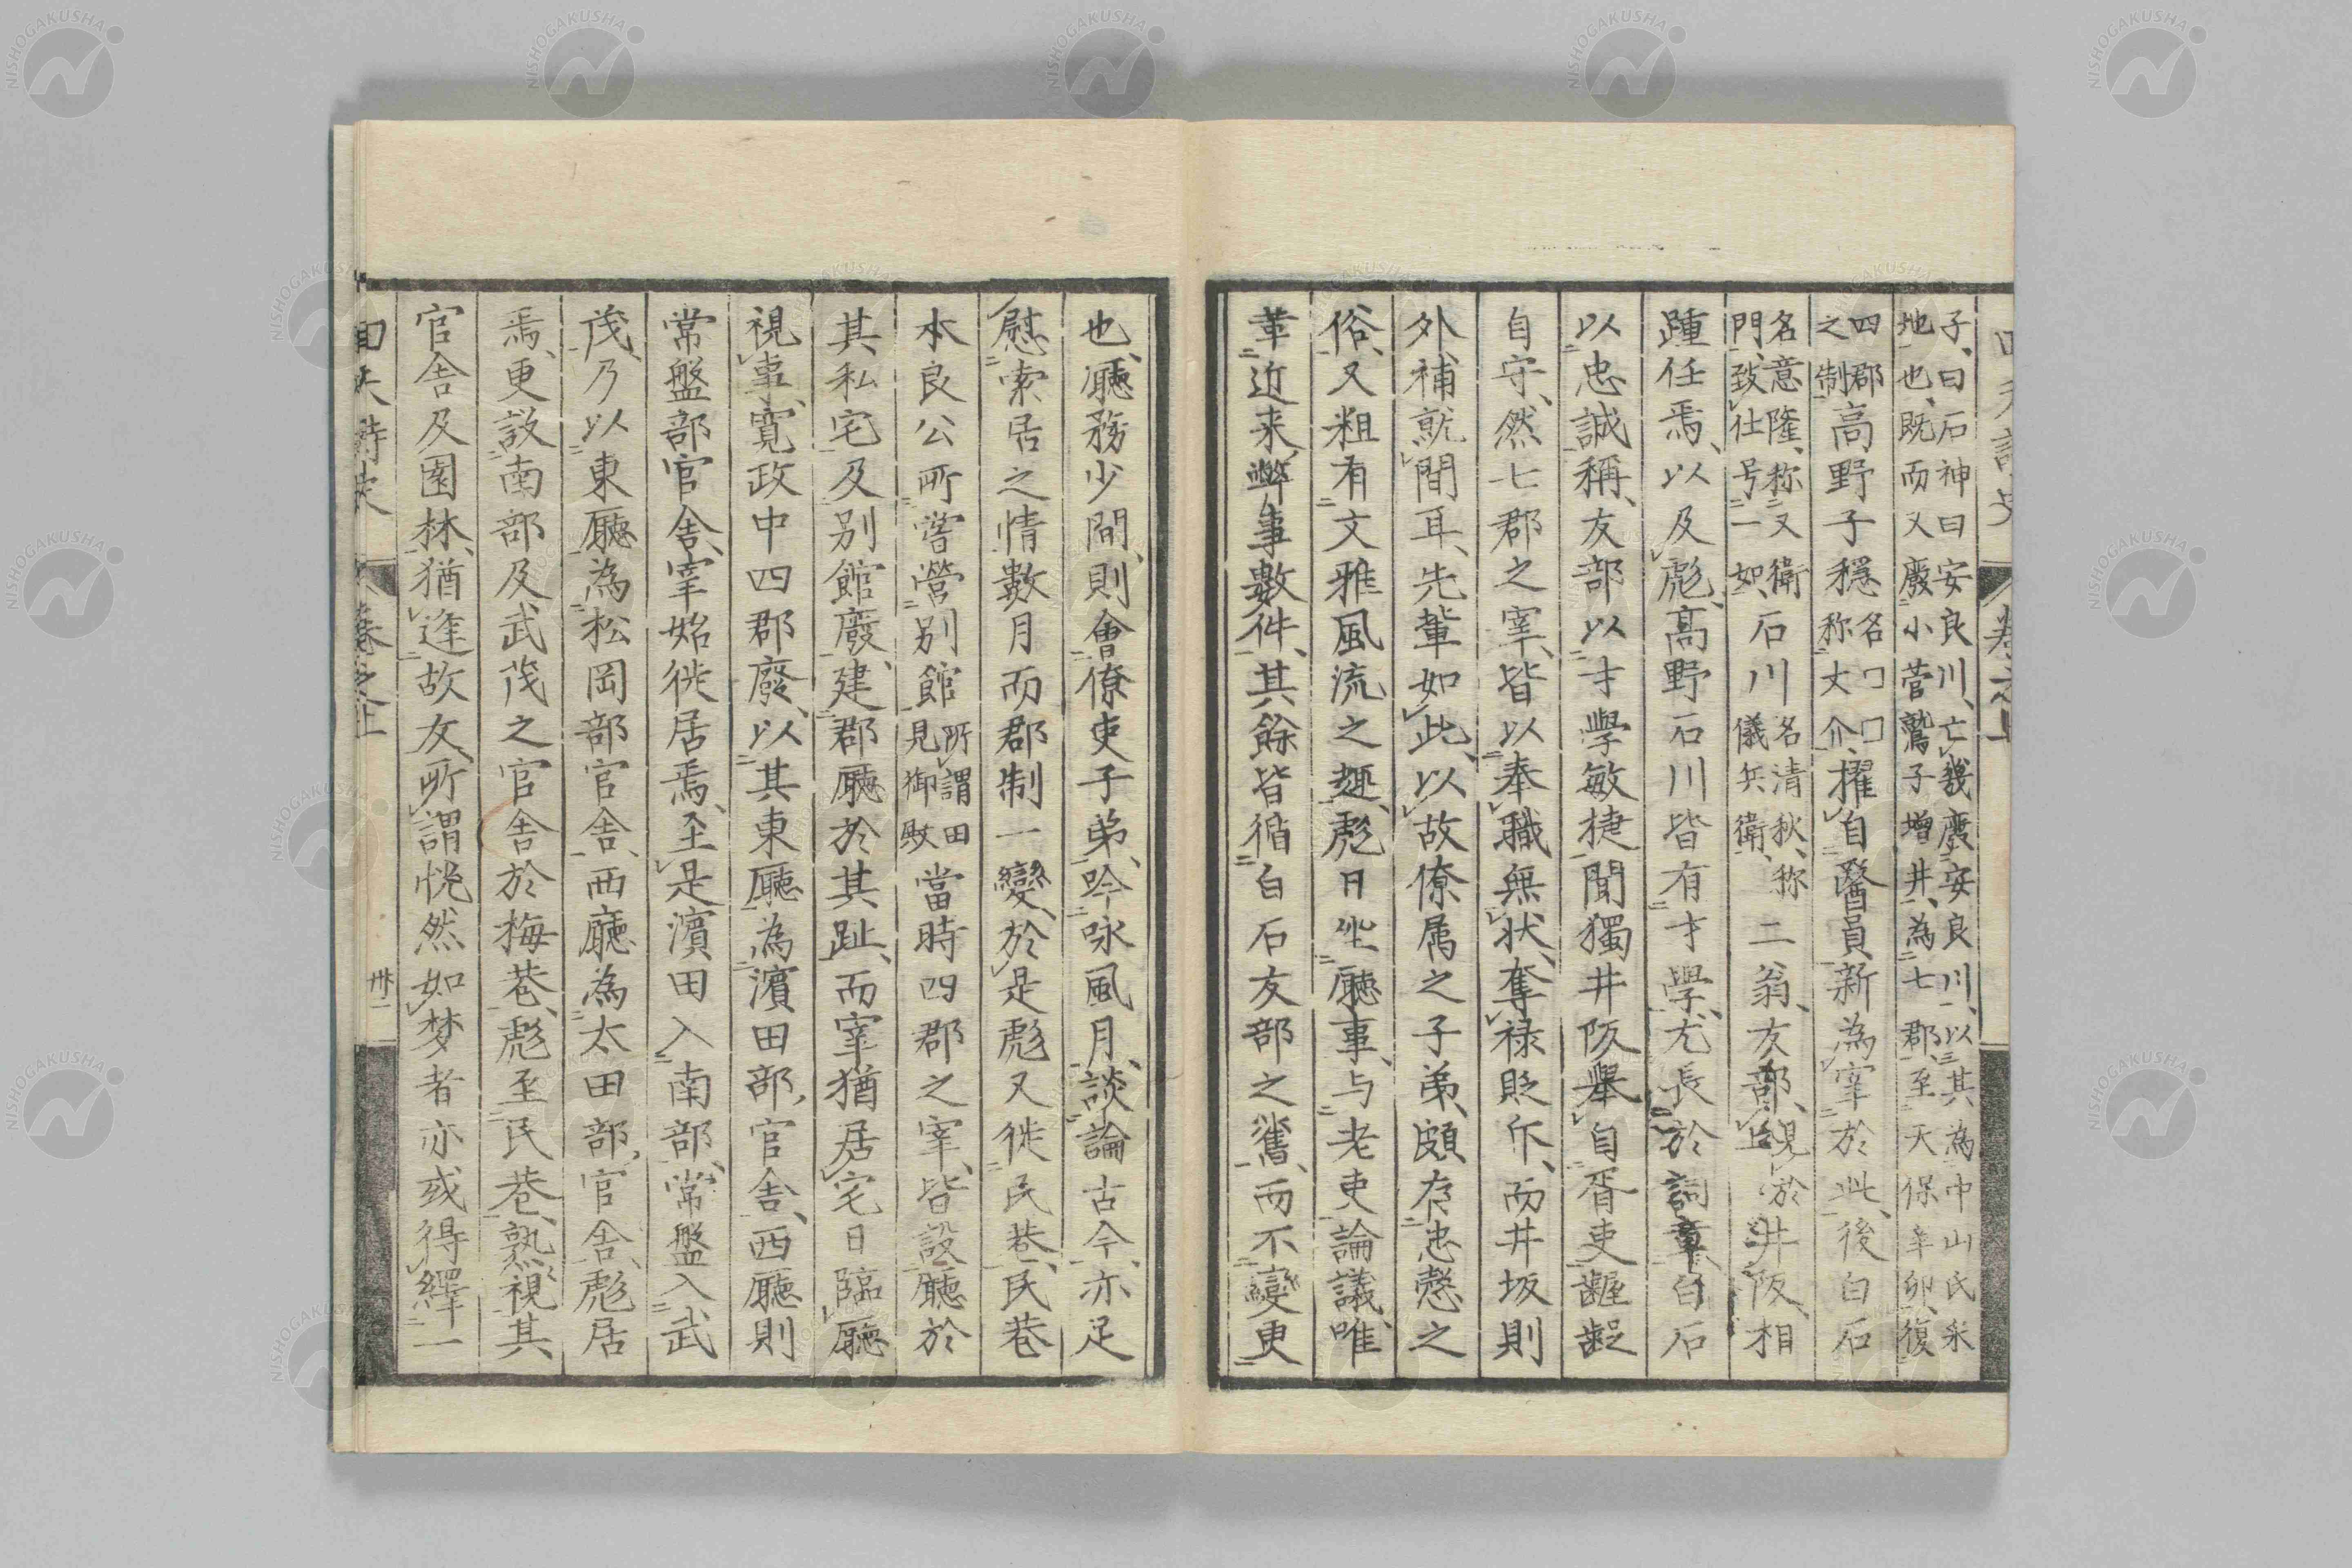 子、曰石神曰安良川、亡幾廢安良川、以其為中山氏采
地也、既而又廢小菅鷲子增井、為七郡、至天保辛卯、復
四郡之制高野子穩名□□称丈介、擢自醫員新為宰於此、後白石
名意隆、称又衛門、致仕号一如、石川名清秋、称儀兵衛、二翁、友部、見於井阪、相
踵任焉、以及彪、高野石川皆有才學、尤長於詞章、白石
以忠誠稱、友部以才學敏捷聞獨井阪舉自胥吏齷齪
自守、然七郡之宰、皆以奉職無状、奪禄貶斥、而井坂則
外補就間耳、先輩如此、以故僚属之子弟、頗存忠愨之
俗、又粗有文雅風流之趣、彪日坐廳事、与老吏論議、唯
革近来弊事數件、其餘皆循白石友部之舊、而不變更
也、廳務少間、則會僚吏子弟、吟咏風月、談論古今、亦足
慰索居之情數月而郡制一變、於是彪又徙民巷、民巷
本良公所嘗營別館所謂田見御殿當時四郡之宰、皆設廳於
其私宅及別館廢、建郡廳於其趾、而宰猶居宅日臨廳
視事、寛政中四郡廢、以其東廳為濱田部官舎、西廳則
常盤部官舎、宰始徙居焉、至是濱田入南部、常盤入武
茂、乃以東廳為松岡部官舎、西廳為太田部官舎、彪居
焉、更設南部及武茂之官舎於梅巷、彪至民巷、熟視其
官舎及園林、猶逢故友、所謂恍然如梦者亦或得繹一
回天詩史 巻之上 卅二